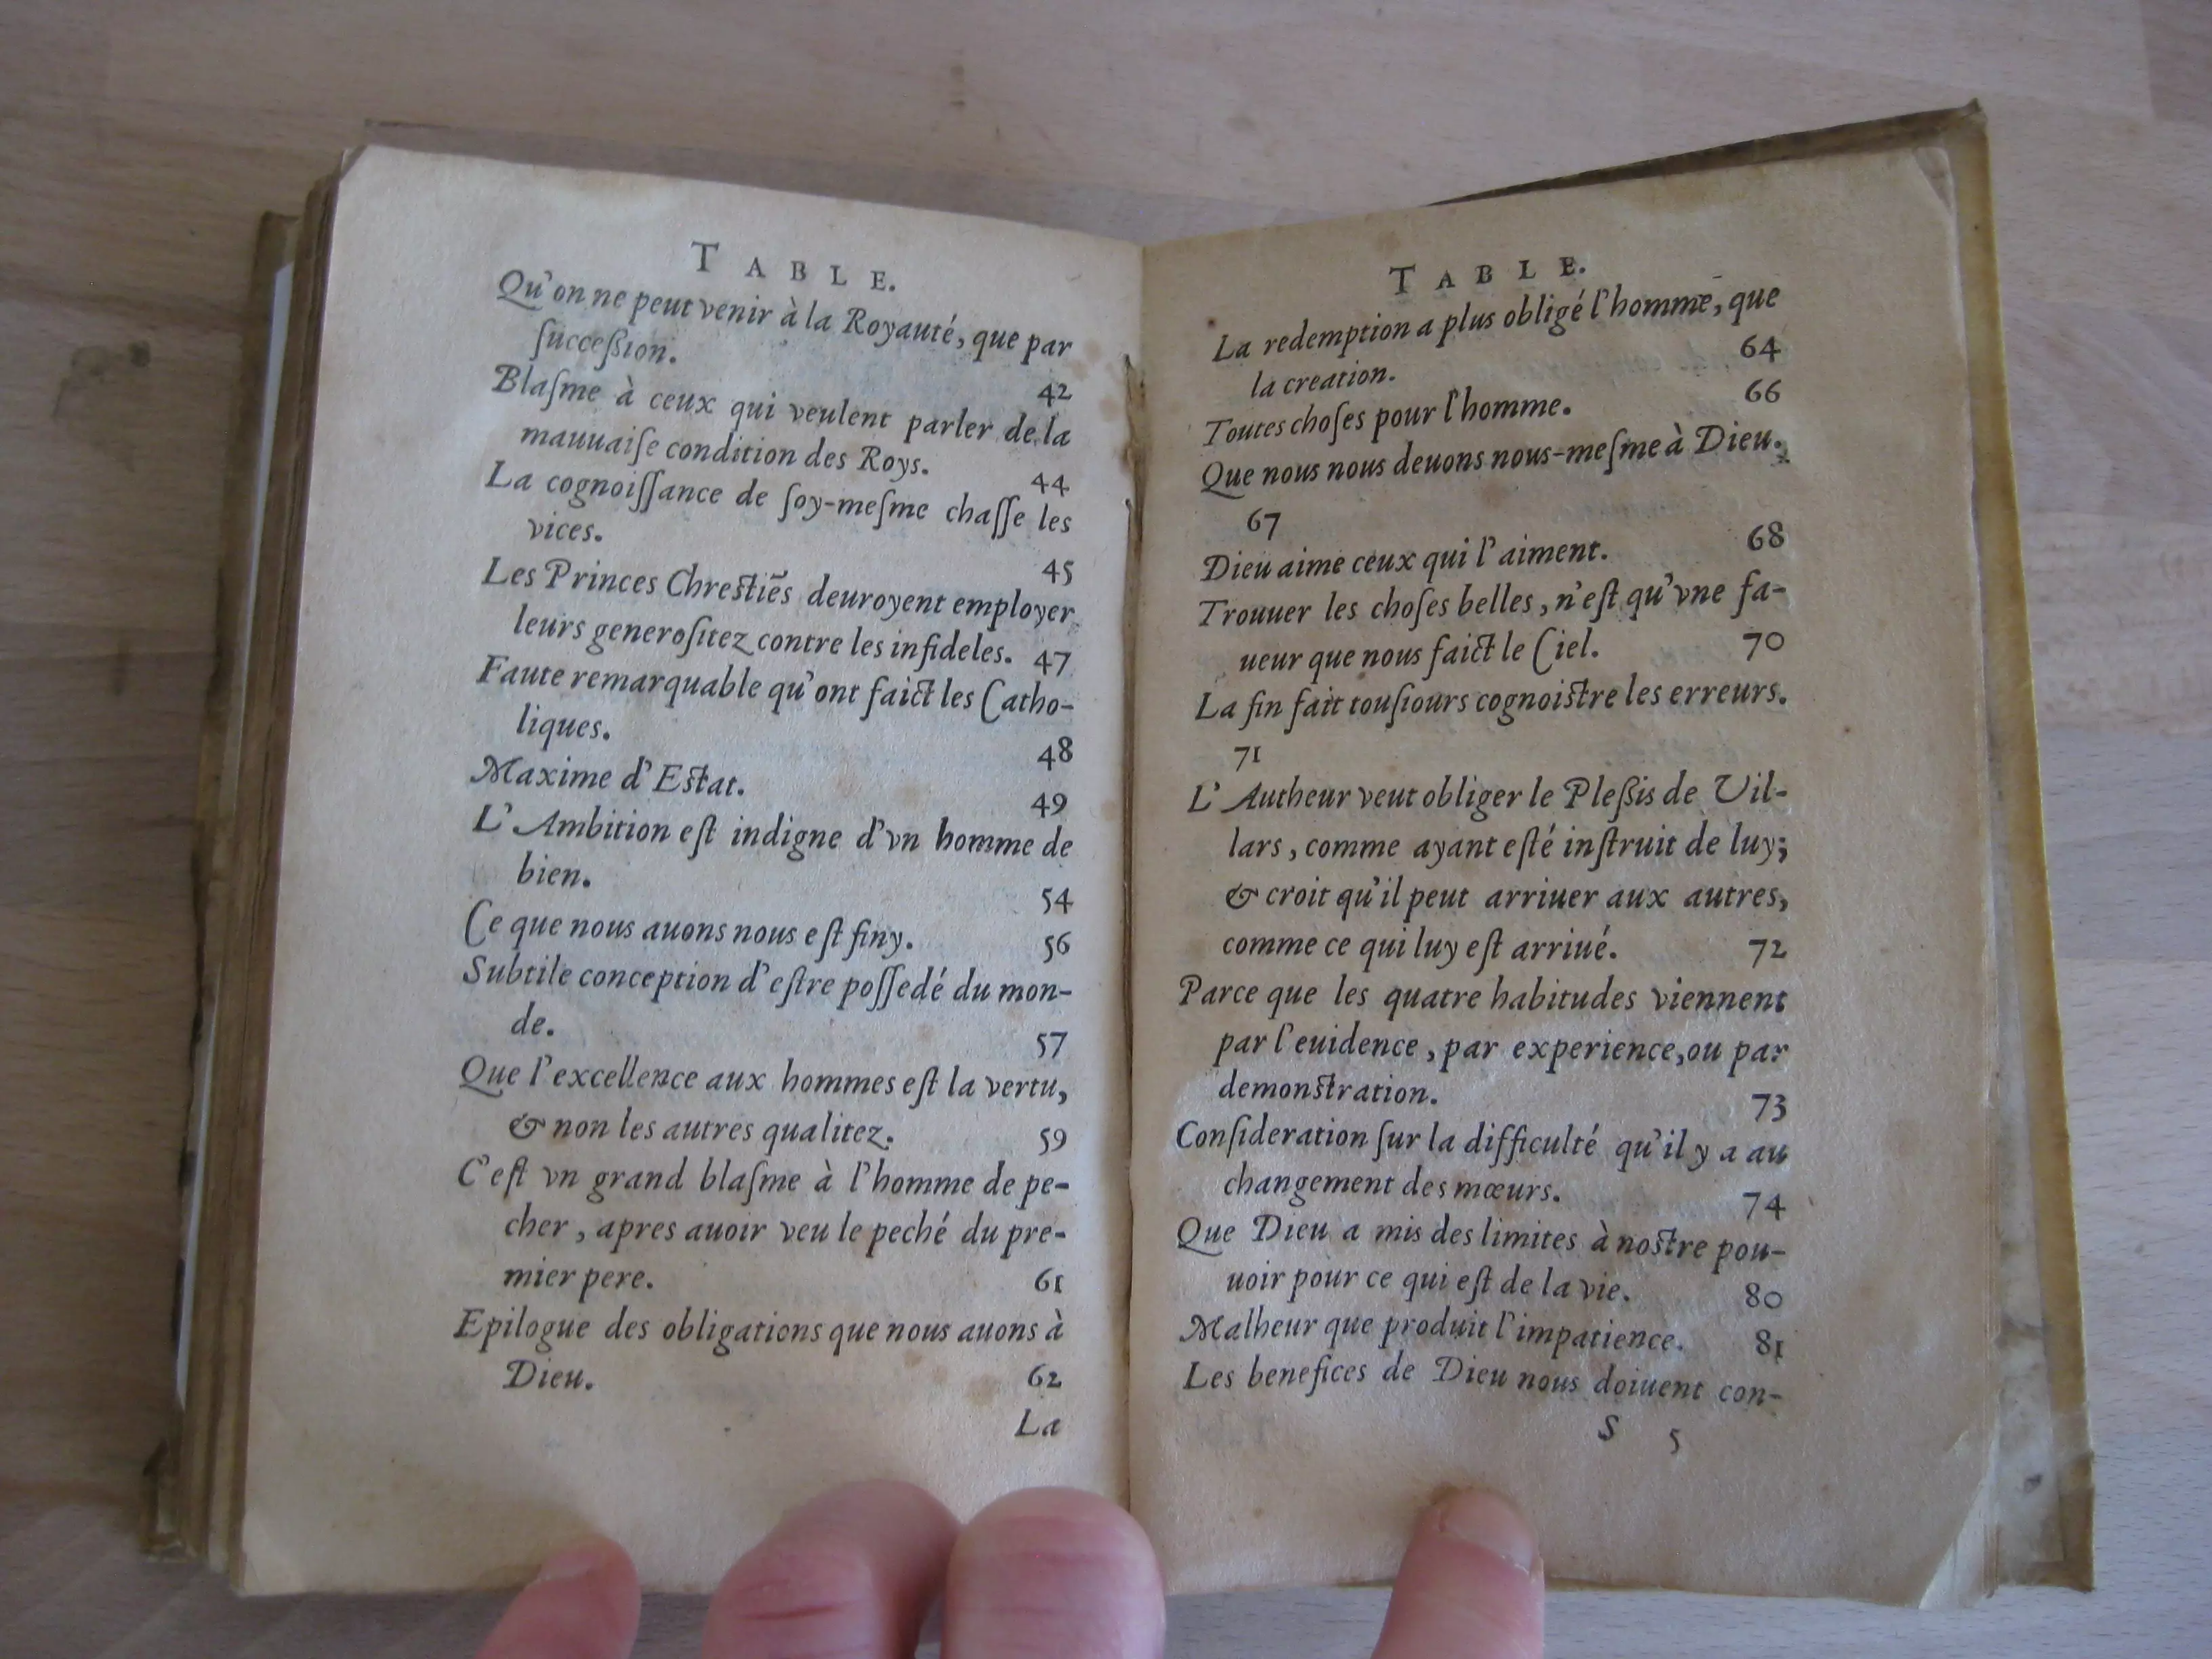 TABLE.
Qu'on ne peut venir à la Royauté, que par
ſucceßion. 42
Blaſme à ceux qui veulent parler de la
mauuaiſe condition des Roys. 44
La cognoiſſance de ſoy-meſme chaſſe les
vices. 45
Les Princes Chreſtiẽs deuroyent employer
leurs generoſitez contre les infideles. 47
Faute remarquable qu'ont faict les Catho-
liques. 48
Maxime d'Eſtat. 49
L'Ambition eſt indigne d'vn homme de
bien. 54
Ce que nous auons nous eſt finy. 56
Subtile conception d'eſtre poſſedé du mon-
de. 57
Que l'excellence aux hommes eſt la vertu,
& non les autres qualitez. 59
C'eſt vn grand blaſme à l'homme de pe-
cher, apres auoir veu le peché du pre-
mier pere. 61
Epilogue des obligations que nous auons à
Dieu. 62
La
TABLE.
La redemption a plus obligé l'homme, que
la creation. 64
Toutes choſes pour l'homme. 66
Que nous nous deuons nous-meſme à Dieu.
67
Dieu aime ceux qui l'aiment. 68
Trouuer les choſes belles, n'eſt qu'vne fa-
ueur que nous faict le Ciel. 70
La fin fait touſiours cognoiſtre les erreurs.
71
L'Autheur veut obliger le Pleßis de Vil-
lars, comme ayant eſté inſtruit de luy;
& croit qu'il peut arriuer aux autres,
comme ce qui luy eſt arriué. 72
Parce que les quatre habitudes viennent
par l'euidence, par experience, ou par
demonſtration. 73
Conſideration ſur la difficulté qu'il y a au
changement des mœurs. 74
Que Dieu a mis des limites à noſtre pou-
uoir pour ce qui eſt de la vie. 80
Malheur que produit l'impatience. 81
Les benefices de Dieu nous doiuent con-
S 5